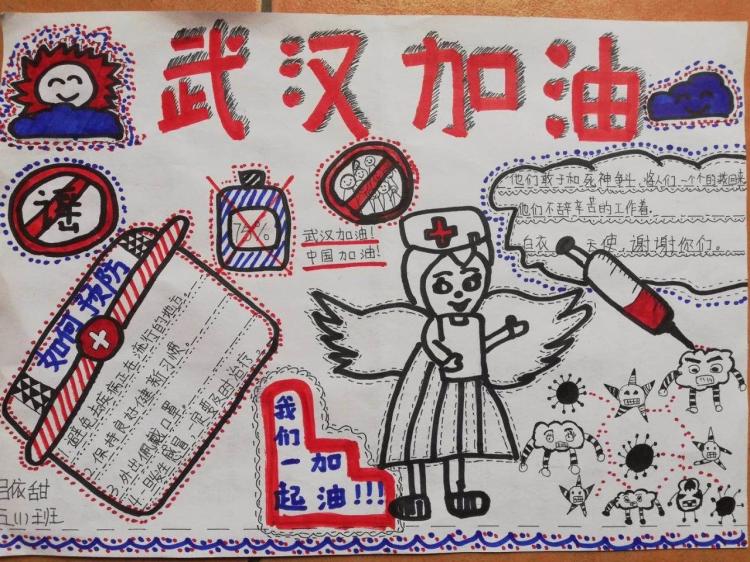 武汉加油
他们敢于和死神争斗,将人们一个个的救回来
他们不辞辛苦的工作着.
白衣天使,谢谢你们。
谣
75%
武汉加油!
中国加油!
如何预防
1.避免去疾病正在流行的地方。
2.保持良好习惯。
3.外出佩戴口罩。
4.发生感冒一定要及时治疗
我
们
一加
起油!!!
依甜
五(1)班